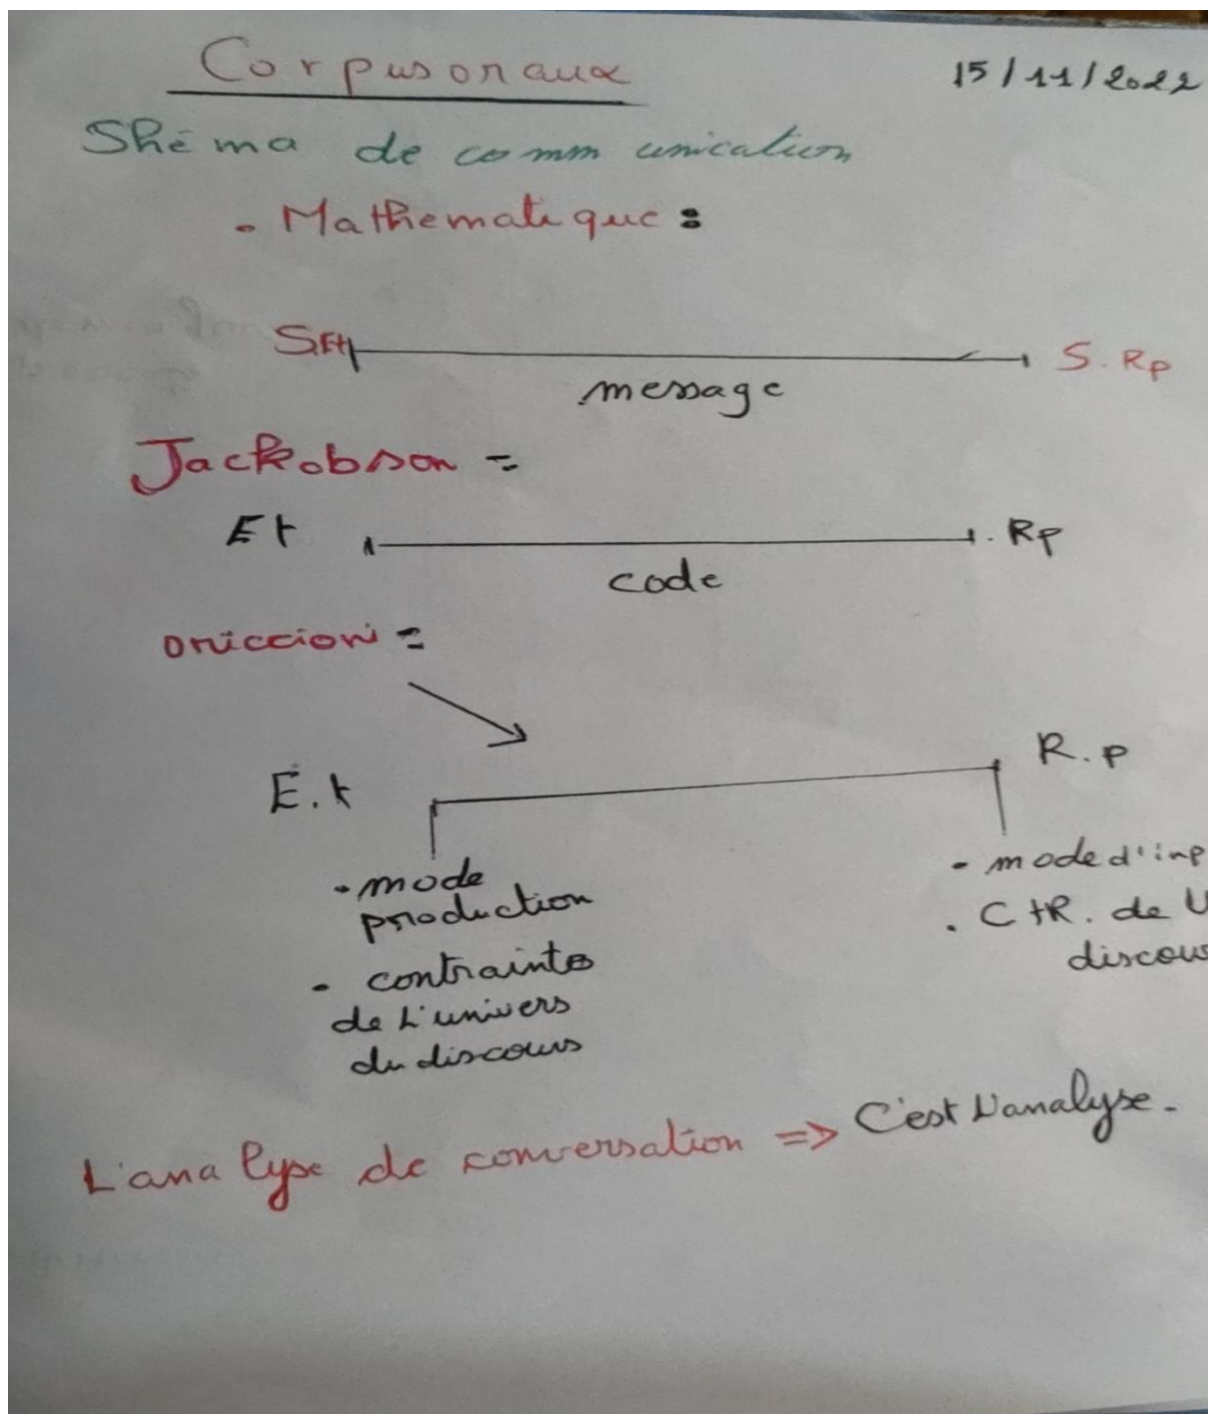 Corpus oraux
15/11/2022
Shéma de communication
- Mathematique :
SEt
S. Rp
message
Jackobson =
Et
. Rp
code
oriccioni =
E.t
R.p
- mode
production
- contraintes
de L'univers
du discours
- mode d'inp
. CtR. de U
discou
L'analyse de conversation => C'est L'analyse.